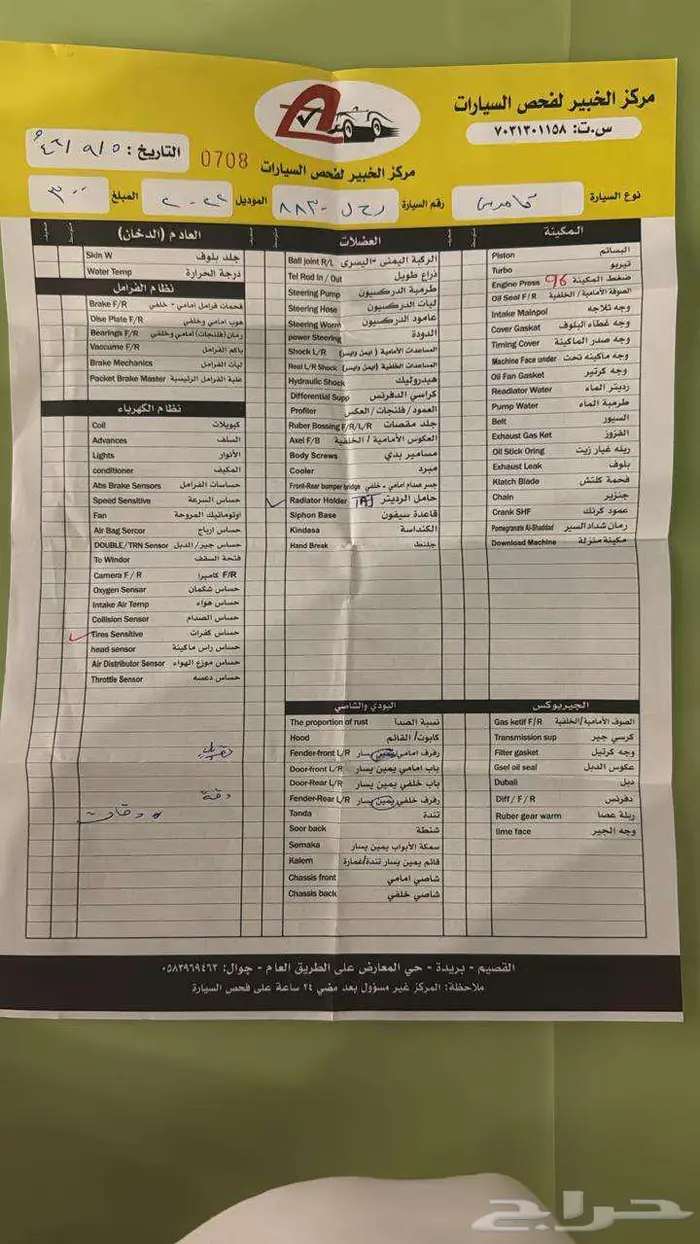 مركز الخبير لفحص السيارات
س.ت: ٧٠٣١٣٠١١٥٨
مركز الخبير لفحص السيارات
0708
التاريخ:
نوع السيارة
رقم السيارة رح ل ٨٨٣٠
الموديل ٢٠٢٢
المبلغ ٣٠٠
المكينة
Piston البساتم
Turbo تيربو
Engine Press 96 ضغط المكينة
Oil Seal F/R الصوفة الأمامية/ الخلفية
Intake Mainpol وجه ثلاجه
Cover Gasket وجه غطاء البلوف
Timing Cover وجه صدر الماكينة
Machine Face under وجه ماكينه تحت
Oil Fan Gasket وجه كرتير
Readiator Water رديتر الماء
Pump Water طرمبة الماء
Belt السيور
Exhaust Gas Ket القزوز
Oil Stick Oring ريله غيار زيت
Exhaust Leak بلوف
Klatch Blade فحمة كلتش
Chain جنزير
Crank SHF عمود كرنك
Pomegranate Al-Shaddad رمان شداد السير
Download Machine مكينة منزلة
العضلات
Ball joint R/L الركبة اليمنى - اليسرى
Tel Rod In / Out ذراع طويل
Steering Pump طرمبة الدركسيون
Steering Hose ليات الدركسيون
Steering Worm عامود الدركسيون
power Steering الدودة
Shock L/R المساعدات الأمامية (ايمن وايسر)
Heal L/R Shock المساعدات الخلفية (ايمن وايسر)
Hydraulic Shock هيدروليك
Differential Supp كراسي الدفرنس
Profiler العمود / فلنجات/ العكس
Ruber Bossing F/R/L/R جلد مقصات
Axel F/B العكوس الأمامية / الخلفية
Body Screws مسامير بدي
Cooler مبرد
Front-Rear bumper bridge جسر صدام امامي - خلفي
Radiator Holder حامل الرديتر
Siphon Base قاعدة سيفون
Kindasa الكنداسة
Hand Break جلنط
العادم (الدخان)
Skin W جلد بلوف
Water Temp درجة الحرارة
نظام الفرامل
Brake F/R فحمات فرامل امامي - خلفي
Disc Plate F/R هوب امامي وخلفي
Bearings F/R رمان (فلنجات) امامي وخلفي
Vaccume F/R باكم الفرامل
Brake Mechanics ليات الفرامل
Packet Brake Master علبة الفرامل الرئيسية
نظام الكهرباء
Coil كويلات
Advances السلف
Lights الأنوار
conditioner المكيف
Abs Brake Sensors حساسات الفرامل
Speed Sensitive حساس السرعة
Fan اوتوماتيك المروحة
Air Bag Sercor حساس ارباج
DOUBLE/TRN Sensor حساس جير/ الدبل
To Windor فتحة السقف
Camera F / R كاميرا F/R
Oxygen Sensar حساس شكمان
Intake Air Temp حساس هواء
Collision Sensor حساس الصدام
Tires Sensitive حساس كفرات
head sensor حساس راس ماكينة
Air Distributor Sensor حساس موزع الهواء
Throttle Sensor حساس دعسه
البودي والشاصي
The proportion of rust نسبة الصدأ
Hood كابوت/ القائم
Fender-front L/R رفرف امامي يمين يسار
Door-front L/R باب امامي يمين يسار
Door-Rear L/R باب خلفي يمين يسار
Fender-Rear L/R رفرف خلفي يمين يسار
Tanda تندة
Soor back شنطة
Semaka سمكة الأبواب يمين يسار
Kalem قائم يمين يسار تندة/غمارة
Chassis front شاصي امامي
Chassis back شاصي خلفي
الجيربوكس
Gas ketif F/R الصوف الأمامية/ الخلفية
Transmission sup كرسي جير
Filter gasket وجه كرتيل
Gsel oil seal عكوس الدبل
Duball دبل
Diff / F / R دفرنس
Ruber gear warm ريلة عصا
lime face وجه الجير
القصيم - بريدة - حي المعارض على الطريق العام - جوال: ٠٥٨٣٩٦٩٤٦٣
ملاحظة: المركز غير مسؤول بعد مضي ٢٤ ساعة على فحص السيارة
حراج